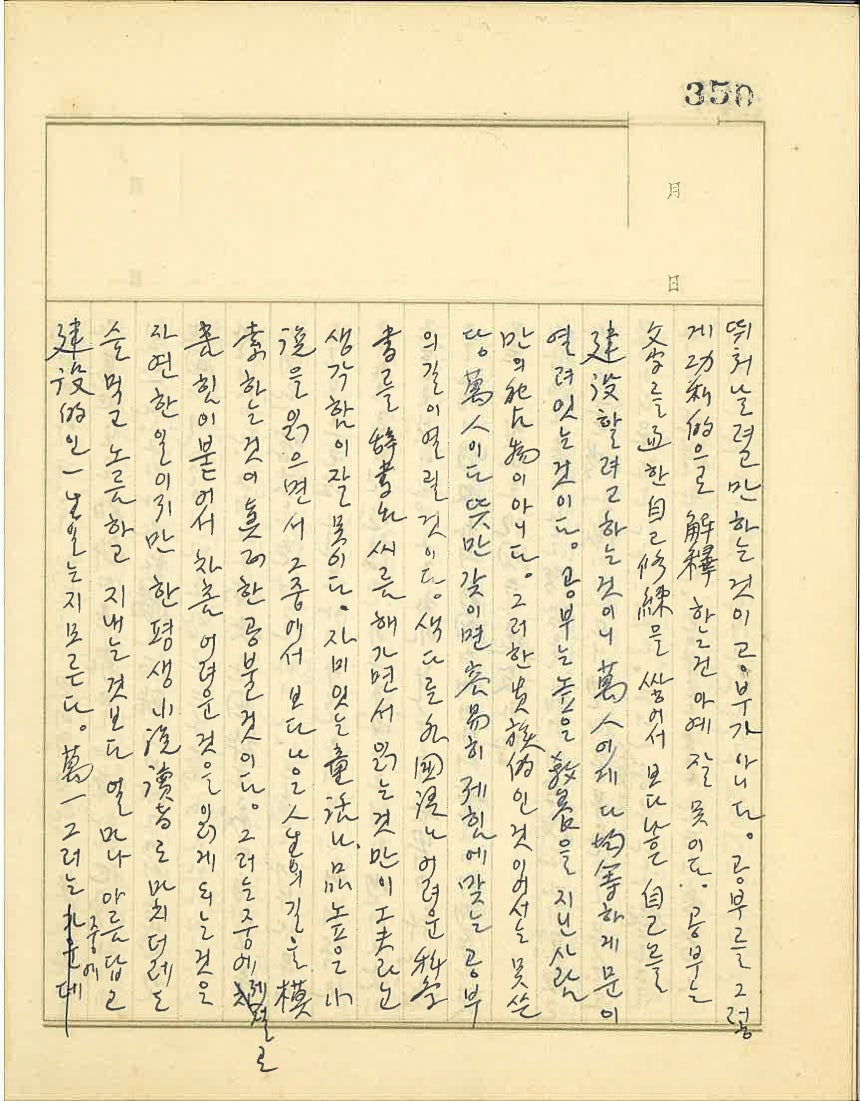 350
月
日
뛰쳐날려만하는것이 공부가아니다。공부를그렇
게功利的으로 解釋하는건 아예 잘못이다。공부는
文字를通한自己修練을 쌓어서 보다나은 自己를
建設할려고하는것이니 萬人에게 다 均等하게 문이
열려있는것이다。공부는높은 敎養을 지닌사람
만의 독占物이아니다。그러한貴族的인것이어서는못쓴
다。萬人이다 뜻만갖이면 容易히 제힘에맞는 공부
의길이열릴것이다。색다른 外國語나 어려운 科學
書를 辭書와 씨름해가면서 읽는것만이工夫라는
생각함이잘못이다。자미있는童話나、品높은小
說을읽으면서 그중에서 보다나은人生의길을 模
索하는것이 眞正한공불것이다。그러는중에 제절로
흠힘이붙어서 차츰 어려운것을읽게되는것은
자연한일이지만 한평생小說讀者로 마치더레도
술먹고노름하고 지내는것보다 얼마나 아름답고
建設的인一生일는지모른다。萬一그러는중에